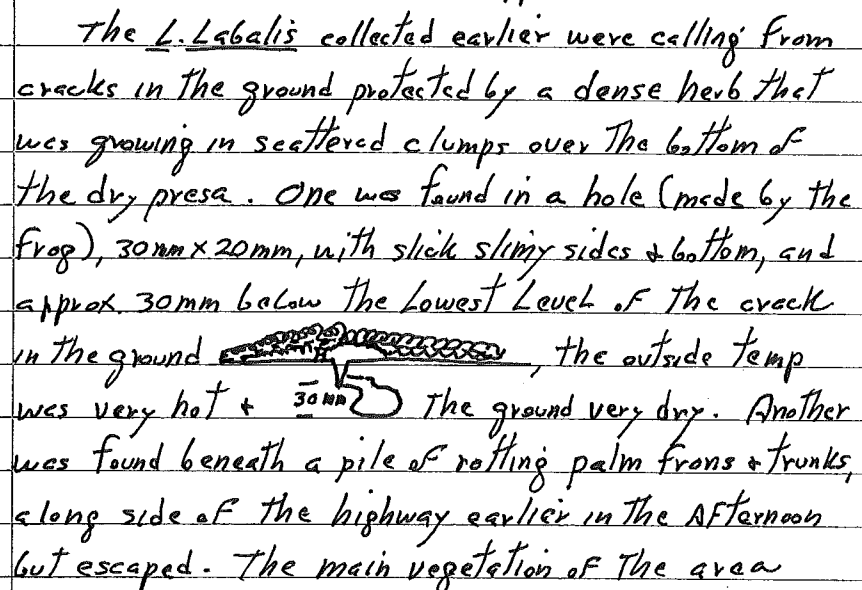 The L. Labalis collected earlier were calling from
cracks in the ground protected by a dense herb that
was growing in scattered clumps over The bottom of
the dry presa. One was found in a hole (made by the
frog), 30mm x 20mm, with slick slimy sides & bottom, and
approx. 30mm below the Lowest Level of The crack
in the ground , the outside temp
was very hot & 30 mm The ground very dry. Another
was found beneath a pile of rotting palm frons & trunks,
along side of the highway earlier in the Afternoon
but escaped. The main vegetation of The area